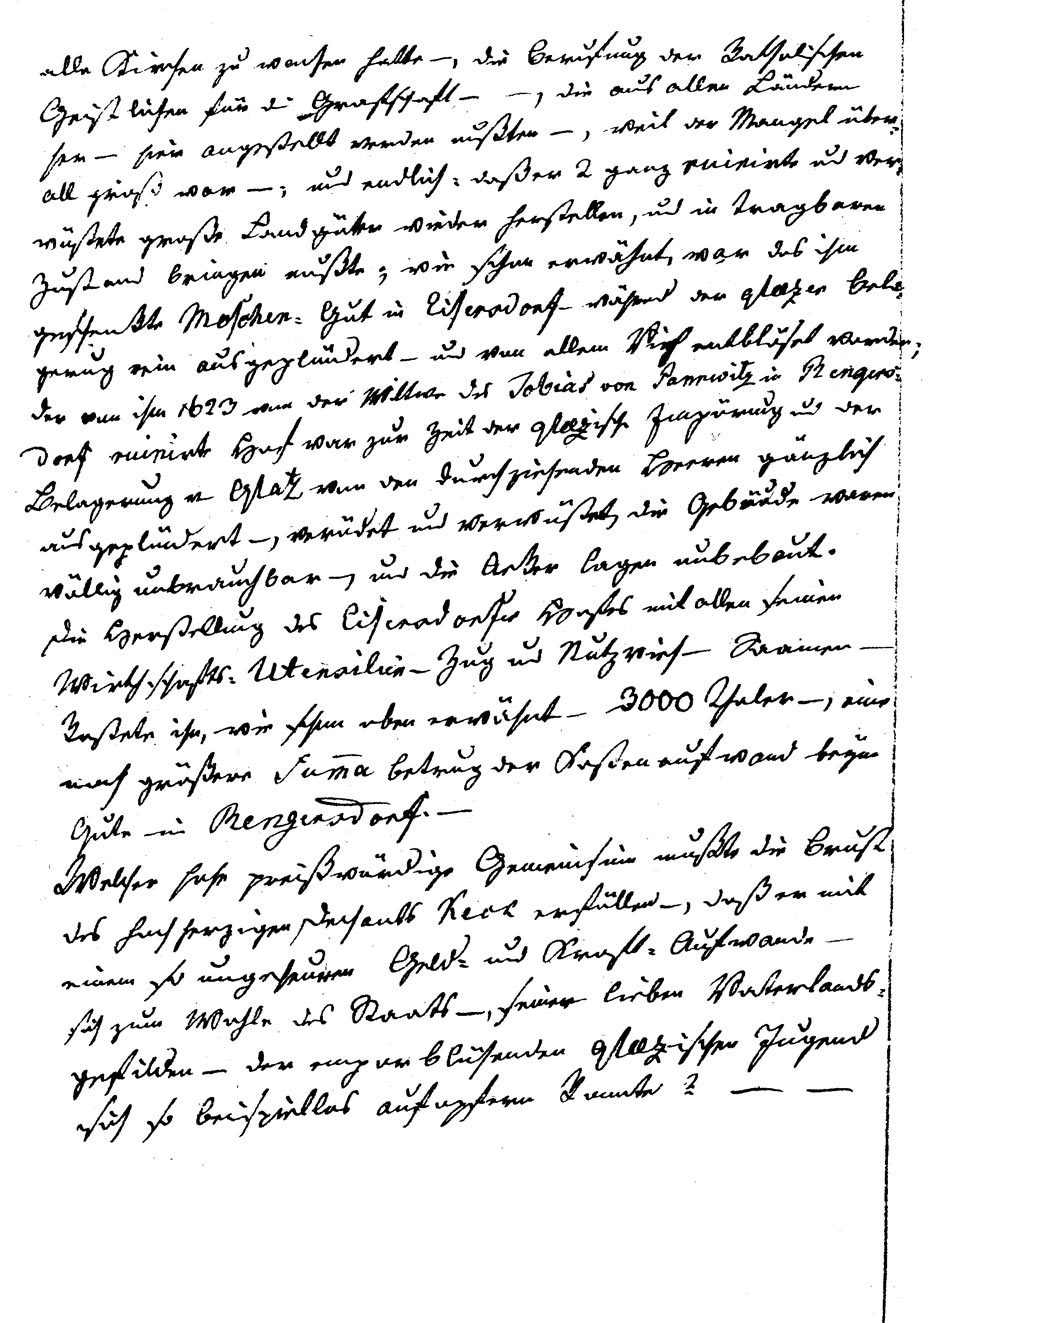 alle Kirchen zu weihen hatte —, die Berufung der Katholischen
Geistlichen für di Grafschaft — —, die aus allen Ländern
her — hier angestellt werden mußten —, weil der Mangel über-
all groß war —; und endlich: daß er 2 ganz ruinirte und ver-
wüstete große Landgüter wieder herstellen, und in tragbaren
Zustand bringen mußte; wie schon erwähnt, war das ihm
geschenkte Moschen- Gut in Eisersdorf während der glatzer Bela-
gerung rein ausgeplündert — und von allem Vieh entblöset worden;
der von ihm 1623 von der Wittwe des Tobias von Pannwitz in Rengers-
dorf ruinirte Hof war zur Zeit der glatzisch Empörung und der
Belagerung v Glatz von den durchziehenden Heeren gänzlich
ausgeplündert —, verödet und verwüstet, die Gebäude waren
völlig unbrauchbar —, und die Aeker lagen unbebaut.
Die Herstellung des Eisersdorfer Hofes mit allen seinen
Wirthschafts- Utensilien — Zug und Nutzvieh — Saamen —
kostete ihn, wie schon oben erwähnt — 3000 Thaler —, eine
noch größere Summa betrug der Kostenaufwand beym
Gute — in Rengersdorf. —
Welcher hohe preißwürdige Gemeinsinn mußte die Brust
des hochherzigen Dechants Keck erfüllen —, daß er mit
einem so ungeheuren Geld- und Kraft- Aufwande —
sich zum Wohle des Staats —, seiner lieben Vaterlands-
gefilden — der emporblühenden glatzischen Jugend
sich so beispiellos aufopfern konnte? — —